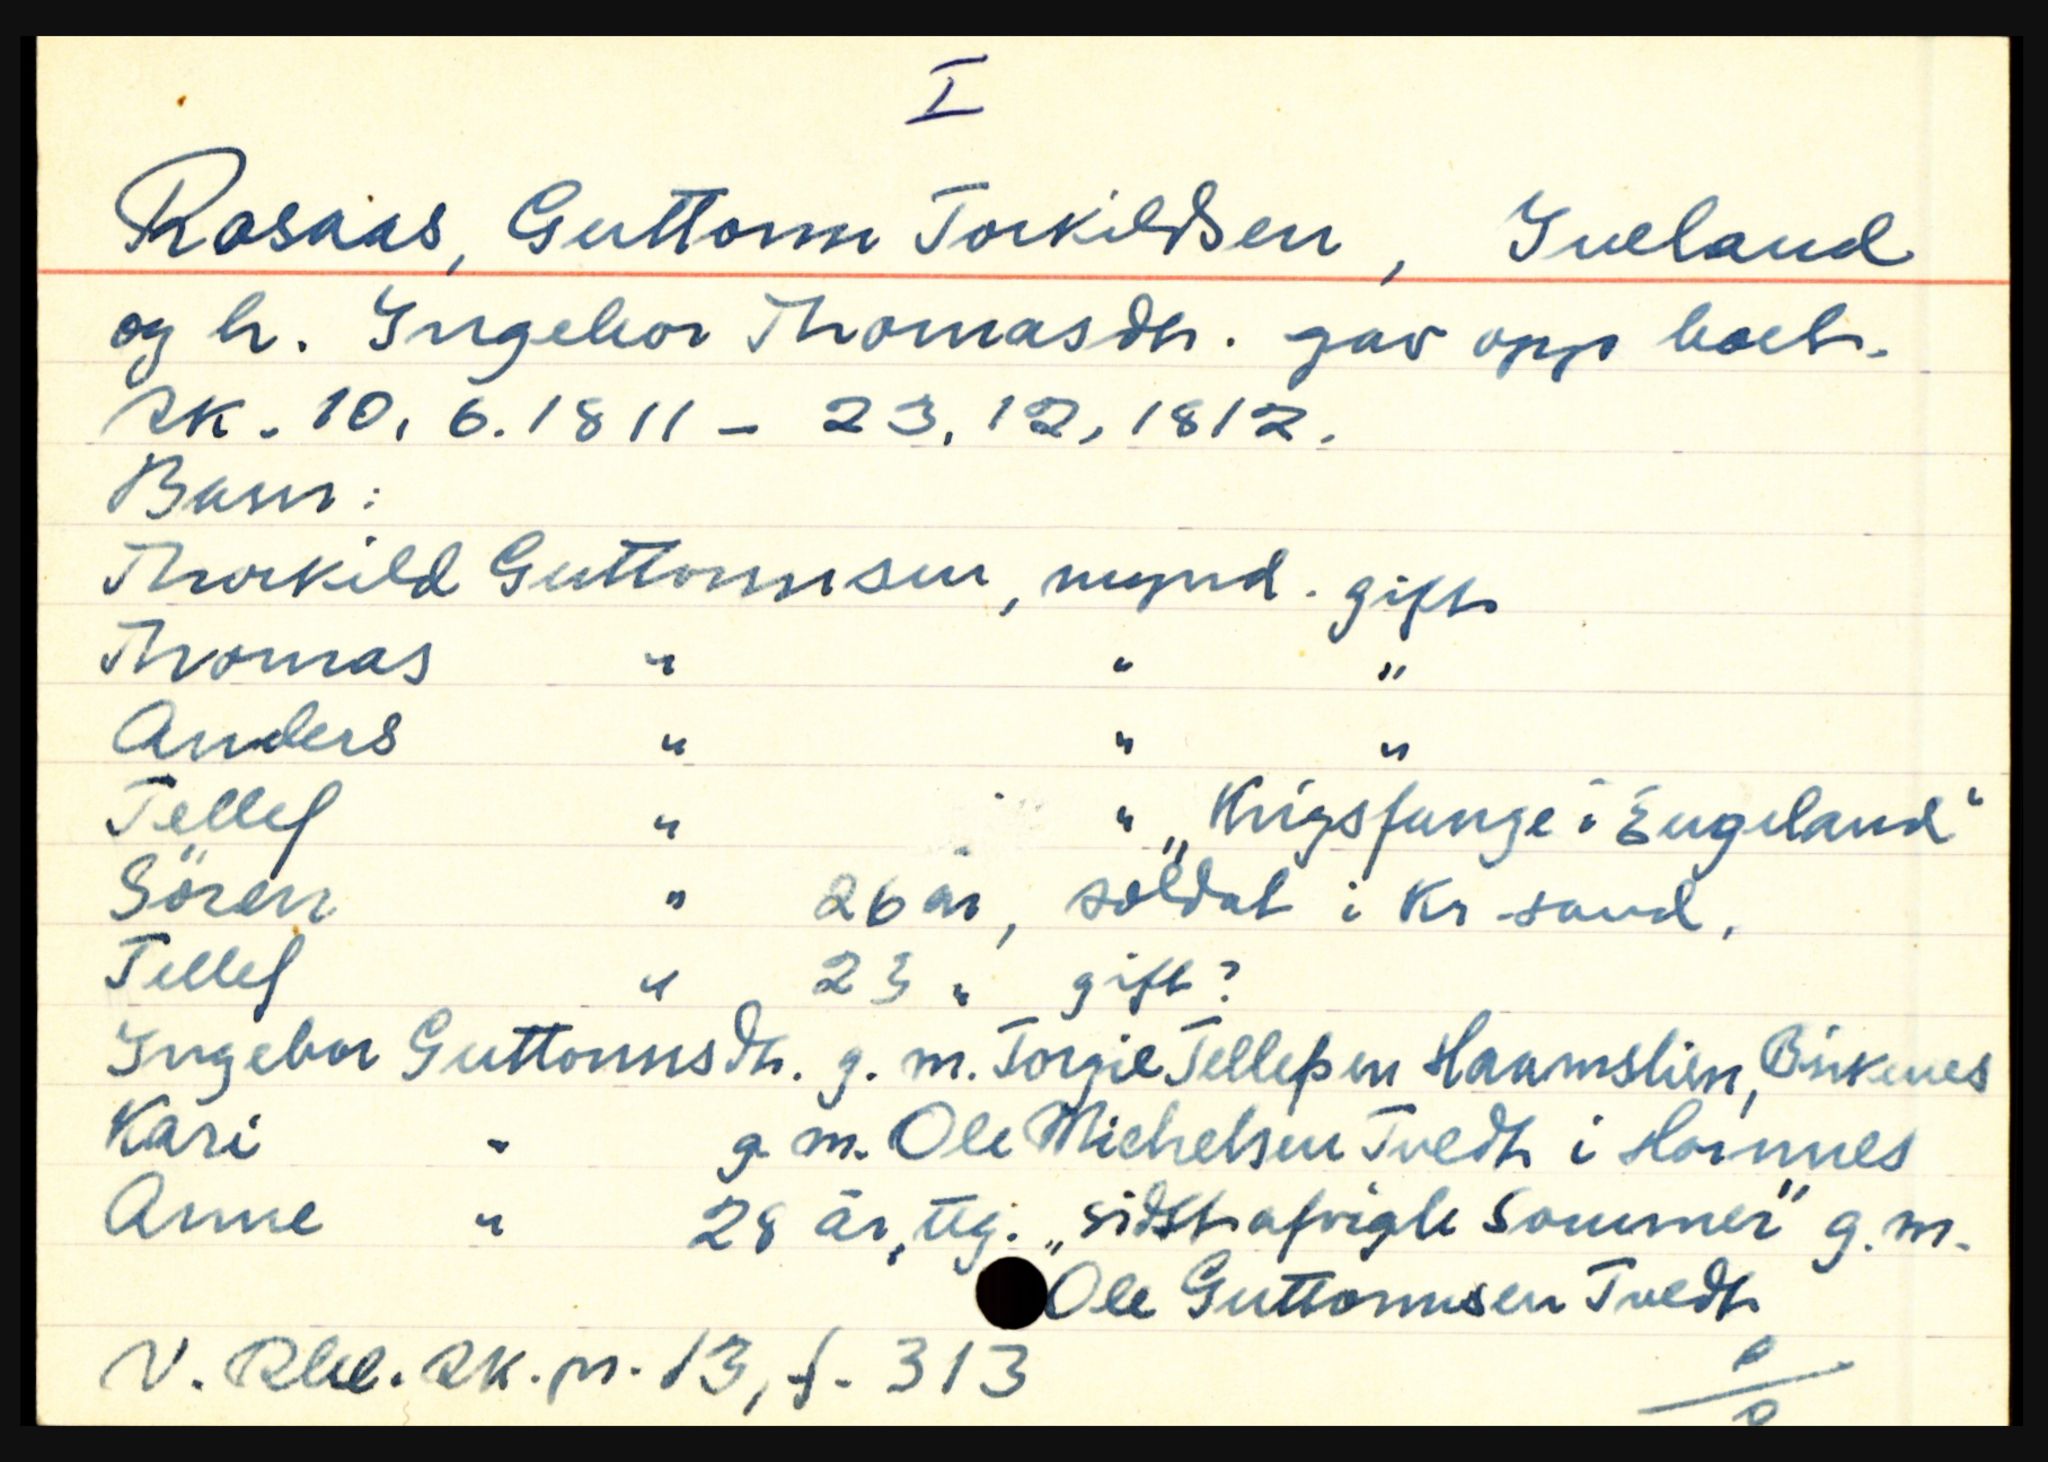 I
Rosaas, Guttorm Torkildsen, Iveland
og h. Ingebor Thomasdtr. gav opp boet.
sk. 10.6.1811 - 23.12.1812.
Barn:
Thorkild Guttormsen, mynd. gift
Thomas " " "
Anders " " "
Tellef " " „Krigsfange i Engeland"
Sören " 26 år, soldat i Kr.sand.
Tellef " 23 " gift?
Ingebor Guttormsdtr. g. m. Torgie Tellefsen Haamslien, Birkenes
Kari " g. m. Ole Michelsen Tvedt i Hornnes
Anne " 28 år, ttg. „sidst afvigte Sommer" g. m.
Ole Guttormsen Tvedt
V. Rbl. sk. pr. 13, f. 313
0/0